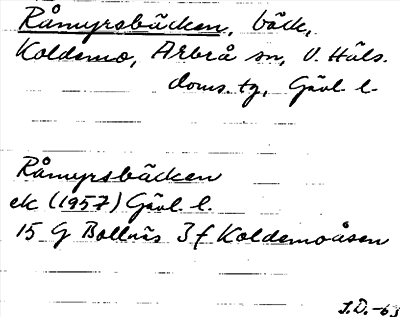 Råmyrsbäcken, bäck,
Koldemo, Arbrå sn, V. Häls.
doms. tg, Gävl. l.
Råmyrsbäcken
ek (1957) Gävl. l.
15 G Bollnäs 3 f Koldemoåsen
J.D. -63